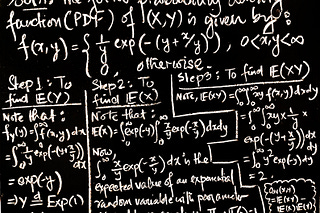 function (PDF) of (X,Y) is given by:
f(x,y) = { 1/y exp(-(y + x/y)), 0<x,y<∞
otherwise.
Step 1: To find E(Y)
Note that:
f_Y(y) = ∫_0^∞ f(x,y) dx
= ∫_0^∞ 1/y e^{-(y+x/y)} dx
= exp(-y)
⇒ Y d= Exp(1)
Step 2: To find E(X)
Note that:
E(X) = ∫_0^∞ exp(-y) ∫_0^∞ x/y exp(-x/y) dx dy
Now
∫_0^∞ x/y exp(-x/y) dx is the
expected value of an exponential
random variable with parameter
Step 3: To find E(XY)
Note, E(XY) = ∫_0^∞ ∫_0^∞ xy f(x,y) dx dy
= ∫_0^∞ ∫_0^∞ xy 1/y x
exp(-(y+x/y)) dx dy
= ∫_0^∞ y² exp(-y) dy
= 2.
Cov(X,Y)
= E(XY) -
E(X)E(Y)